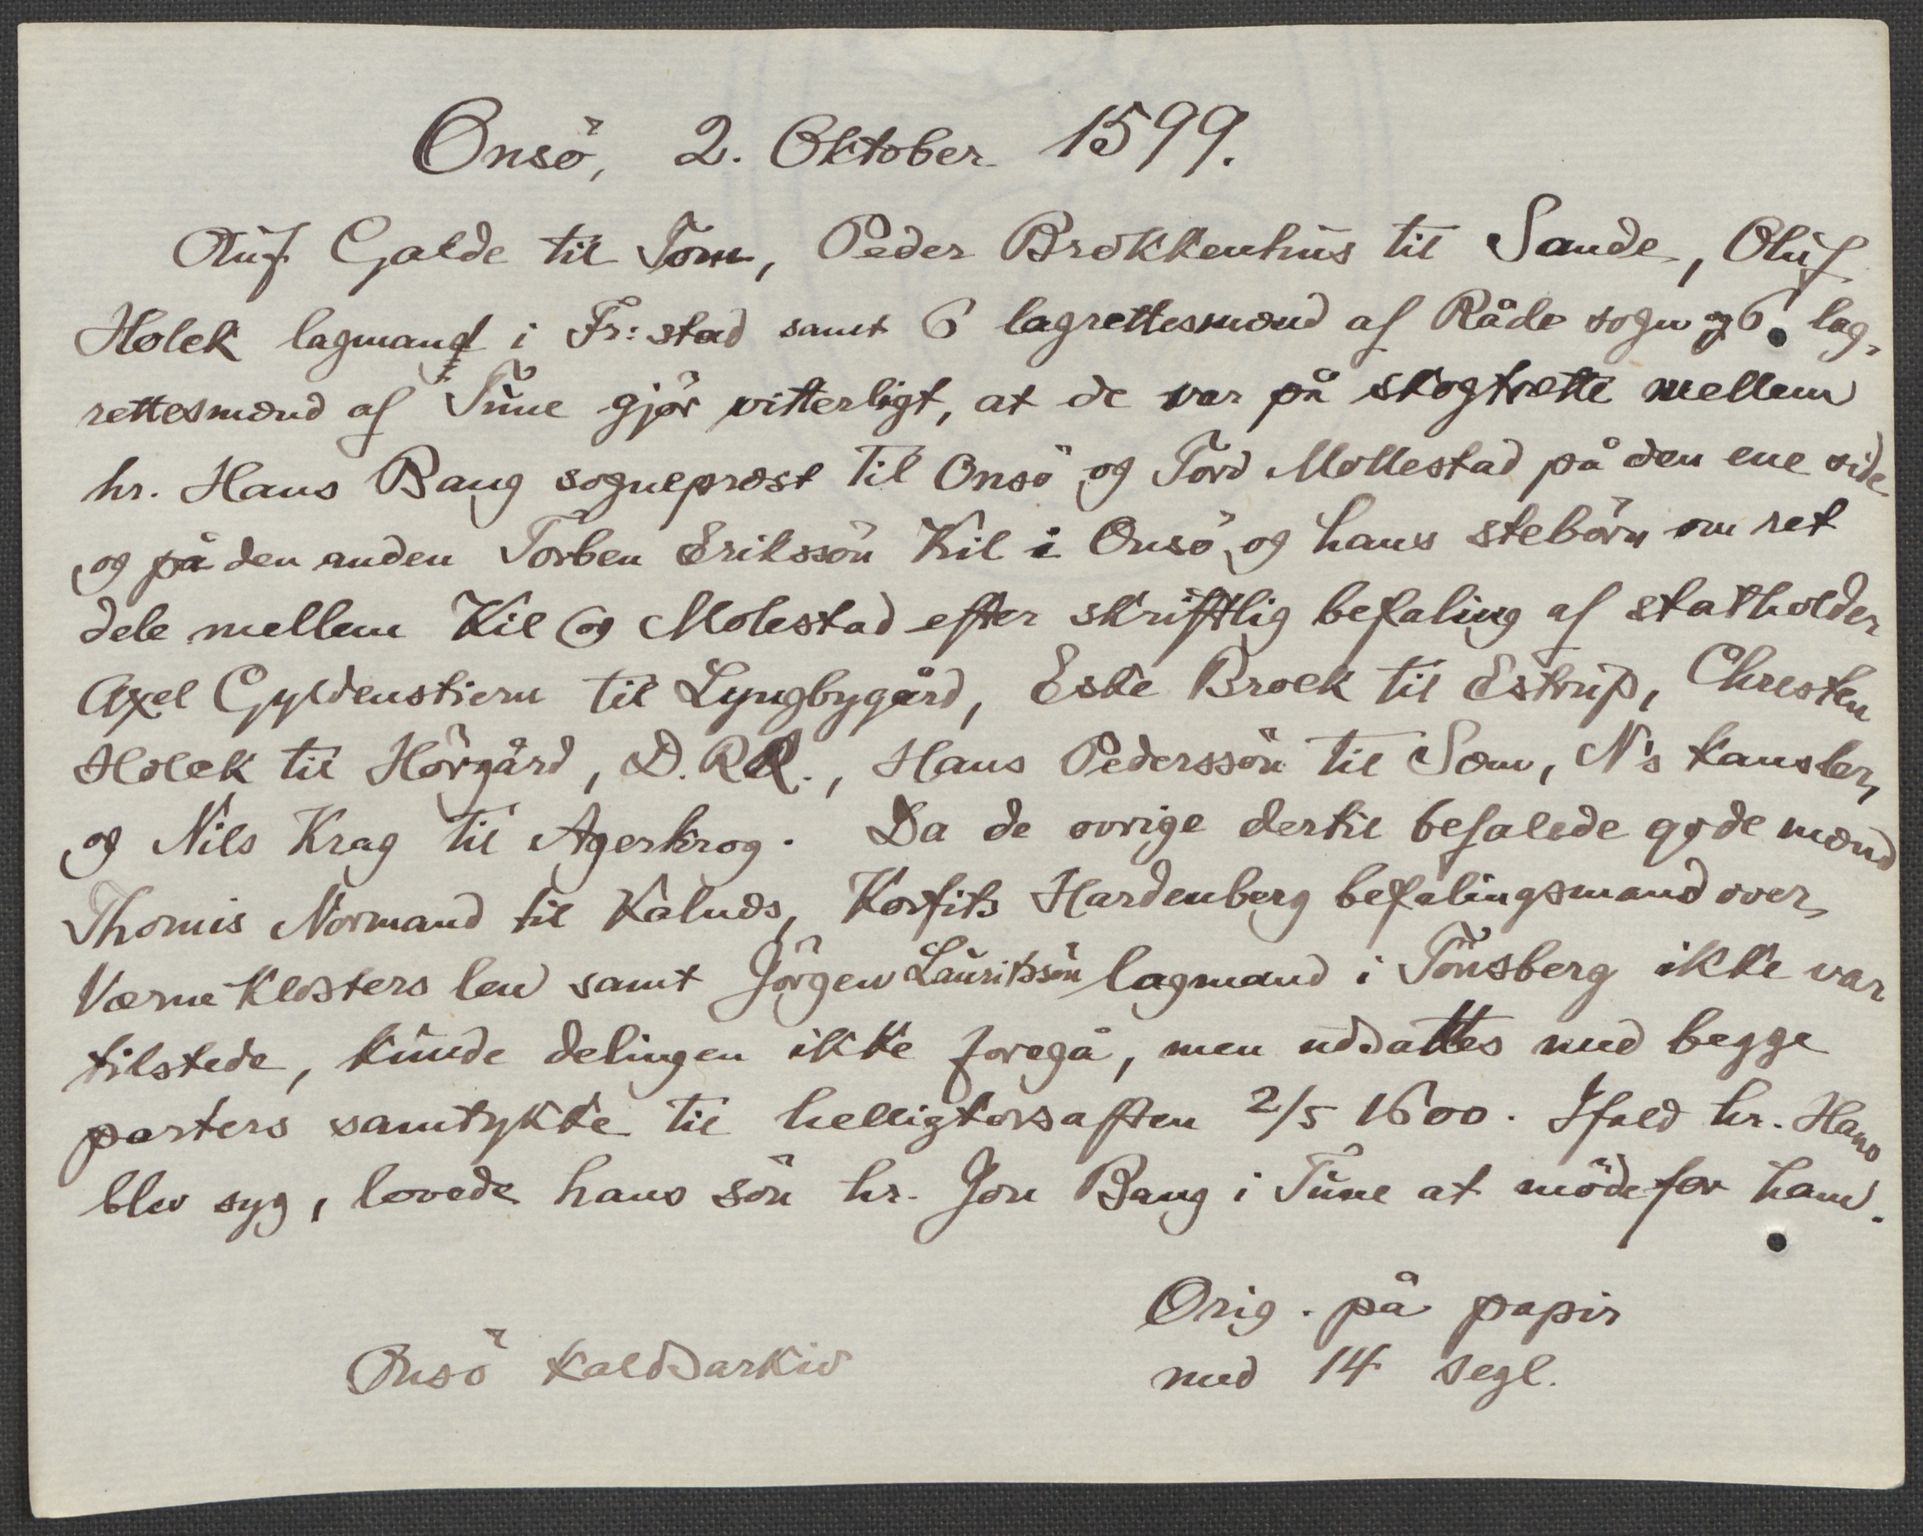 Onsö, 2. Oktober 1599.
Oluf Galde til Tom, Peder Brokkenhus til Sande, Oluf
Holck lagmand i Fr:stad samt 6 lagrettesmænd af Råde sogn og 6 lag-
rettesmænd af Tune gjør vitterligt, at de var på skogtrætte mellem
hr. Hans Bang sogneprest til Onsö og Tord Mollestad på den ene side
og på den anden Torben Erikssön Kil i Onsö og hans stebörn om ret
dele mellem Kil og Molestad efter skriftlig befaling af statholder
Axel Gyldenstiern til Lyngbygård, Eske Brock til Estrup, Christen
Holck til Hörgård, D.R.R., Hans Pederssön til Sem, N's kansler,
og Nils Krag til Agerkrog. Da de ovrige dertil befalede gode mænd
Thomis Normand til Kalnæs, Korfits Hardenberg befalingsmand over
Værne Klosters len samt Jörgen Lauritssön lagmand i Tönsberg ikke var
tilstede, kunde delingen ikke foregå, men uddattes med begge
parters samtykke til helligtorsaften 2/5 1600. Ifald hr. Hans
blev syg, lovede hans sön hr. Jon Bang i Tune at möde for ham.
Orig. på papir
med 14 segl.
Onsö kaldsarkiv